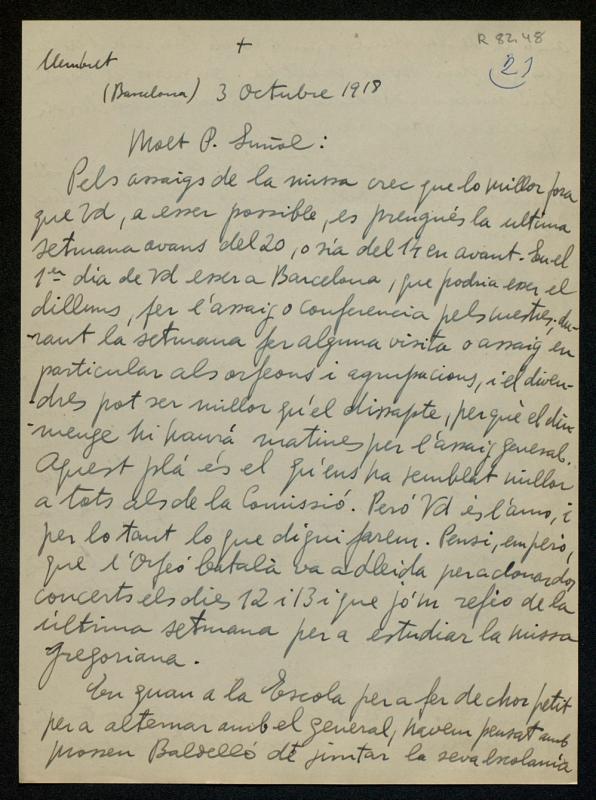 R 82.48
+
(21)
Membret
(Barcelona) 3 Octubre 1918
Molt P. Suñol:
Pels assaigs de la missa crec que lo millor fora
que Vd, a esser possible, es prengués la ultima
setmana avans del 20, o sia del 14 en avant. En el
1er dia de Vd esser a Barcelona, que podria esser el
dilluns, fer l'assaig o conferencia pels mestres; du-
-rant la setmana fer alguna visita o assaig en
particular als orfeons i agrupacions, i el diven-
-dres pot ser millor qu'el dissapte, perquè el diu-
-menge hi haurà matines per l'assaig general.
Aquest plá és el qu'ens ha semblat millor
a tots als de la Comissió. Peró Vd és l'amo, i
per lo tant lo que digui farem. Pensi, emperó,
que l'Orfeó Català va a Lleida per a donar dos
concerts els dies 12 i 13 i que jó'm refio de la
última setmana per a estudiar la missa
gregoriana.
En quan a la Escola per a fer de chor petit
per a alternar amb el general, havem pensat amb
mossen Baldelló de juntar la seva escolania